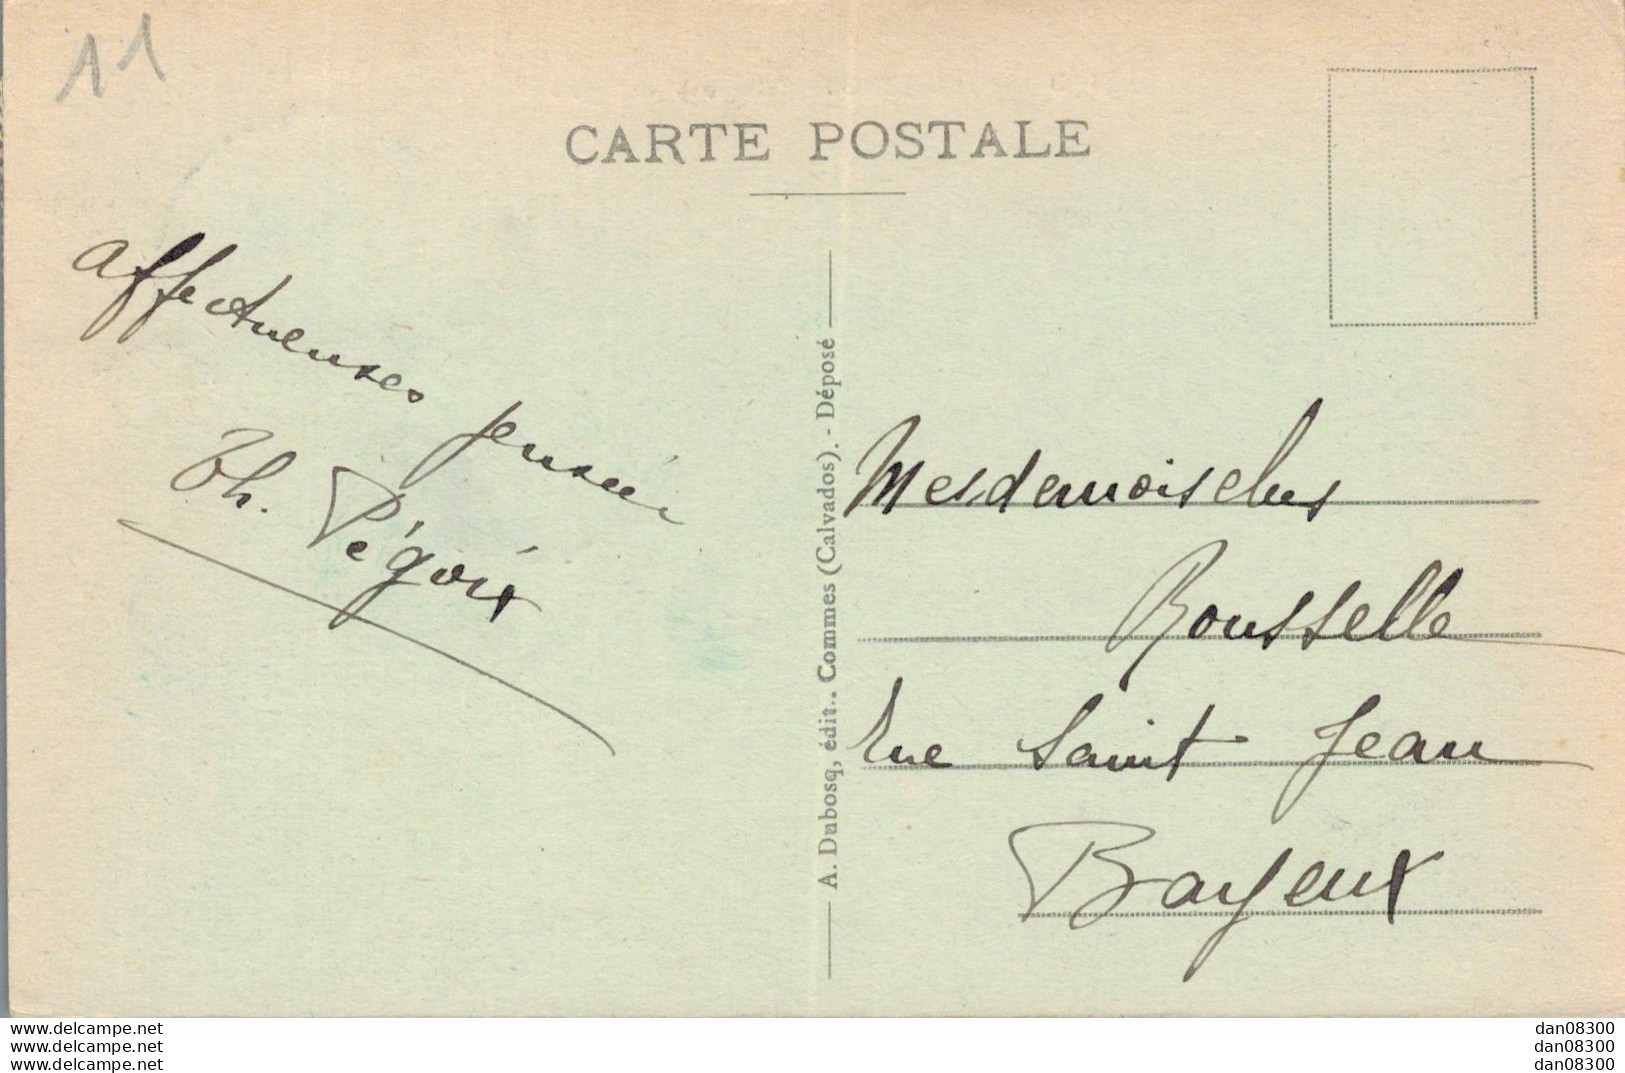 11
CARTE POSTALE
affectueuses pensées
Th. Pégoix
A. Dubosq, édit.. Commes (Calvados). - Déposé
Mesdemoiselles
Rousselle
rue Saint Jean
Bayeux
www.delcampe.net
www.delcampe.net
www.delcampe.net
dan08300
dan08300
dan08300